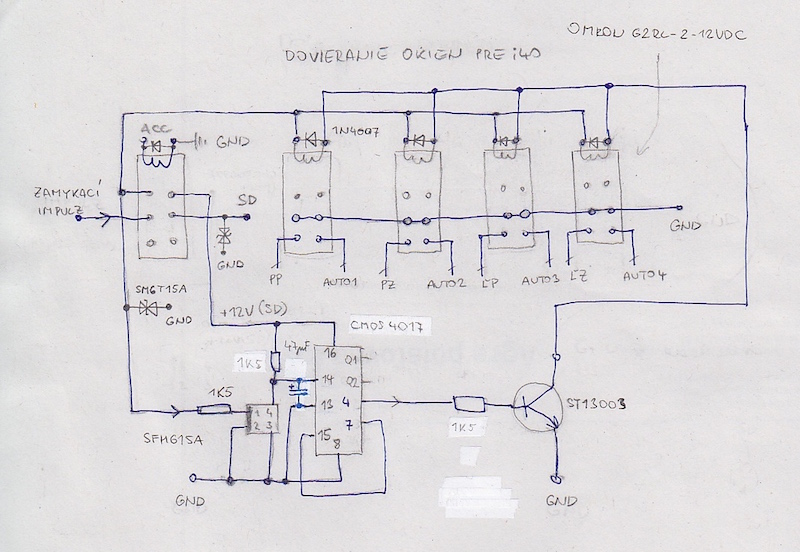 OMRON G2RL-2-12VDC
DOVIERANIE OKIEN PRE i40
ACC
GND
1N4007
ZAMYKACÍ
IMPULZ
SD
GND
GND
PP
AUTO1
PZ
AUTO2
ĽP
AUTO3
ĽZ
AUTO4
SM6T15A
GND
+12V (SD)
CMOS 4017
47µF
1K5
16
Q1
14
Q2
13
4
15
7
8
1K5
1 4
2 3
SFH615A
1K5
ST13003
GND
GND